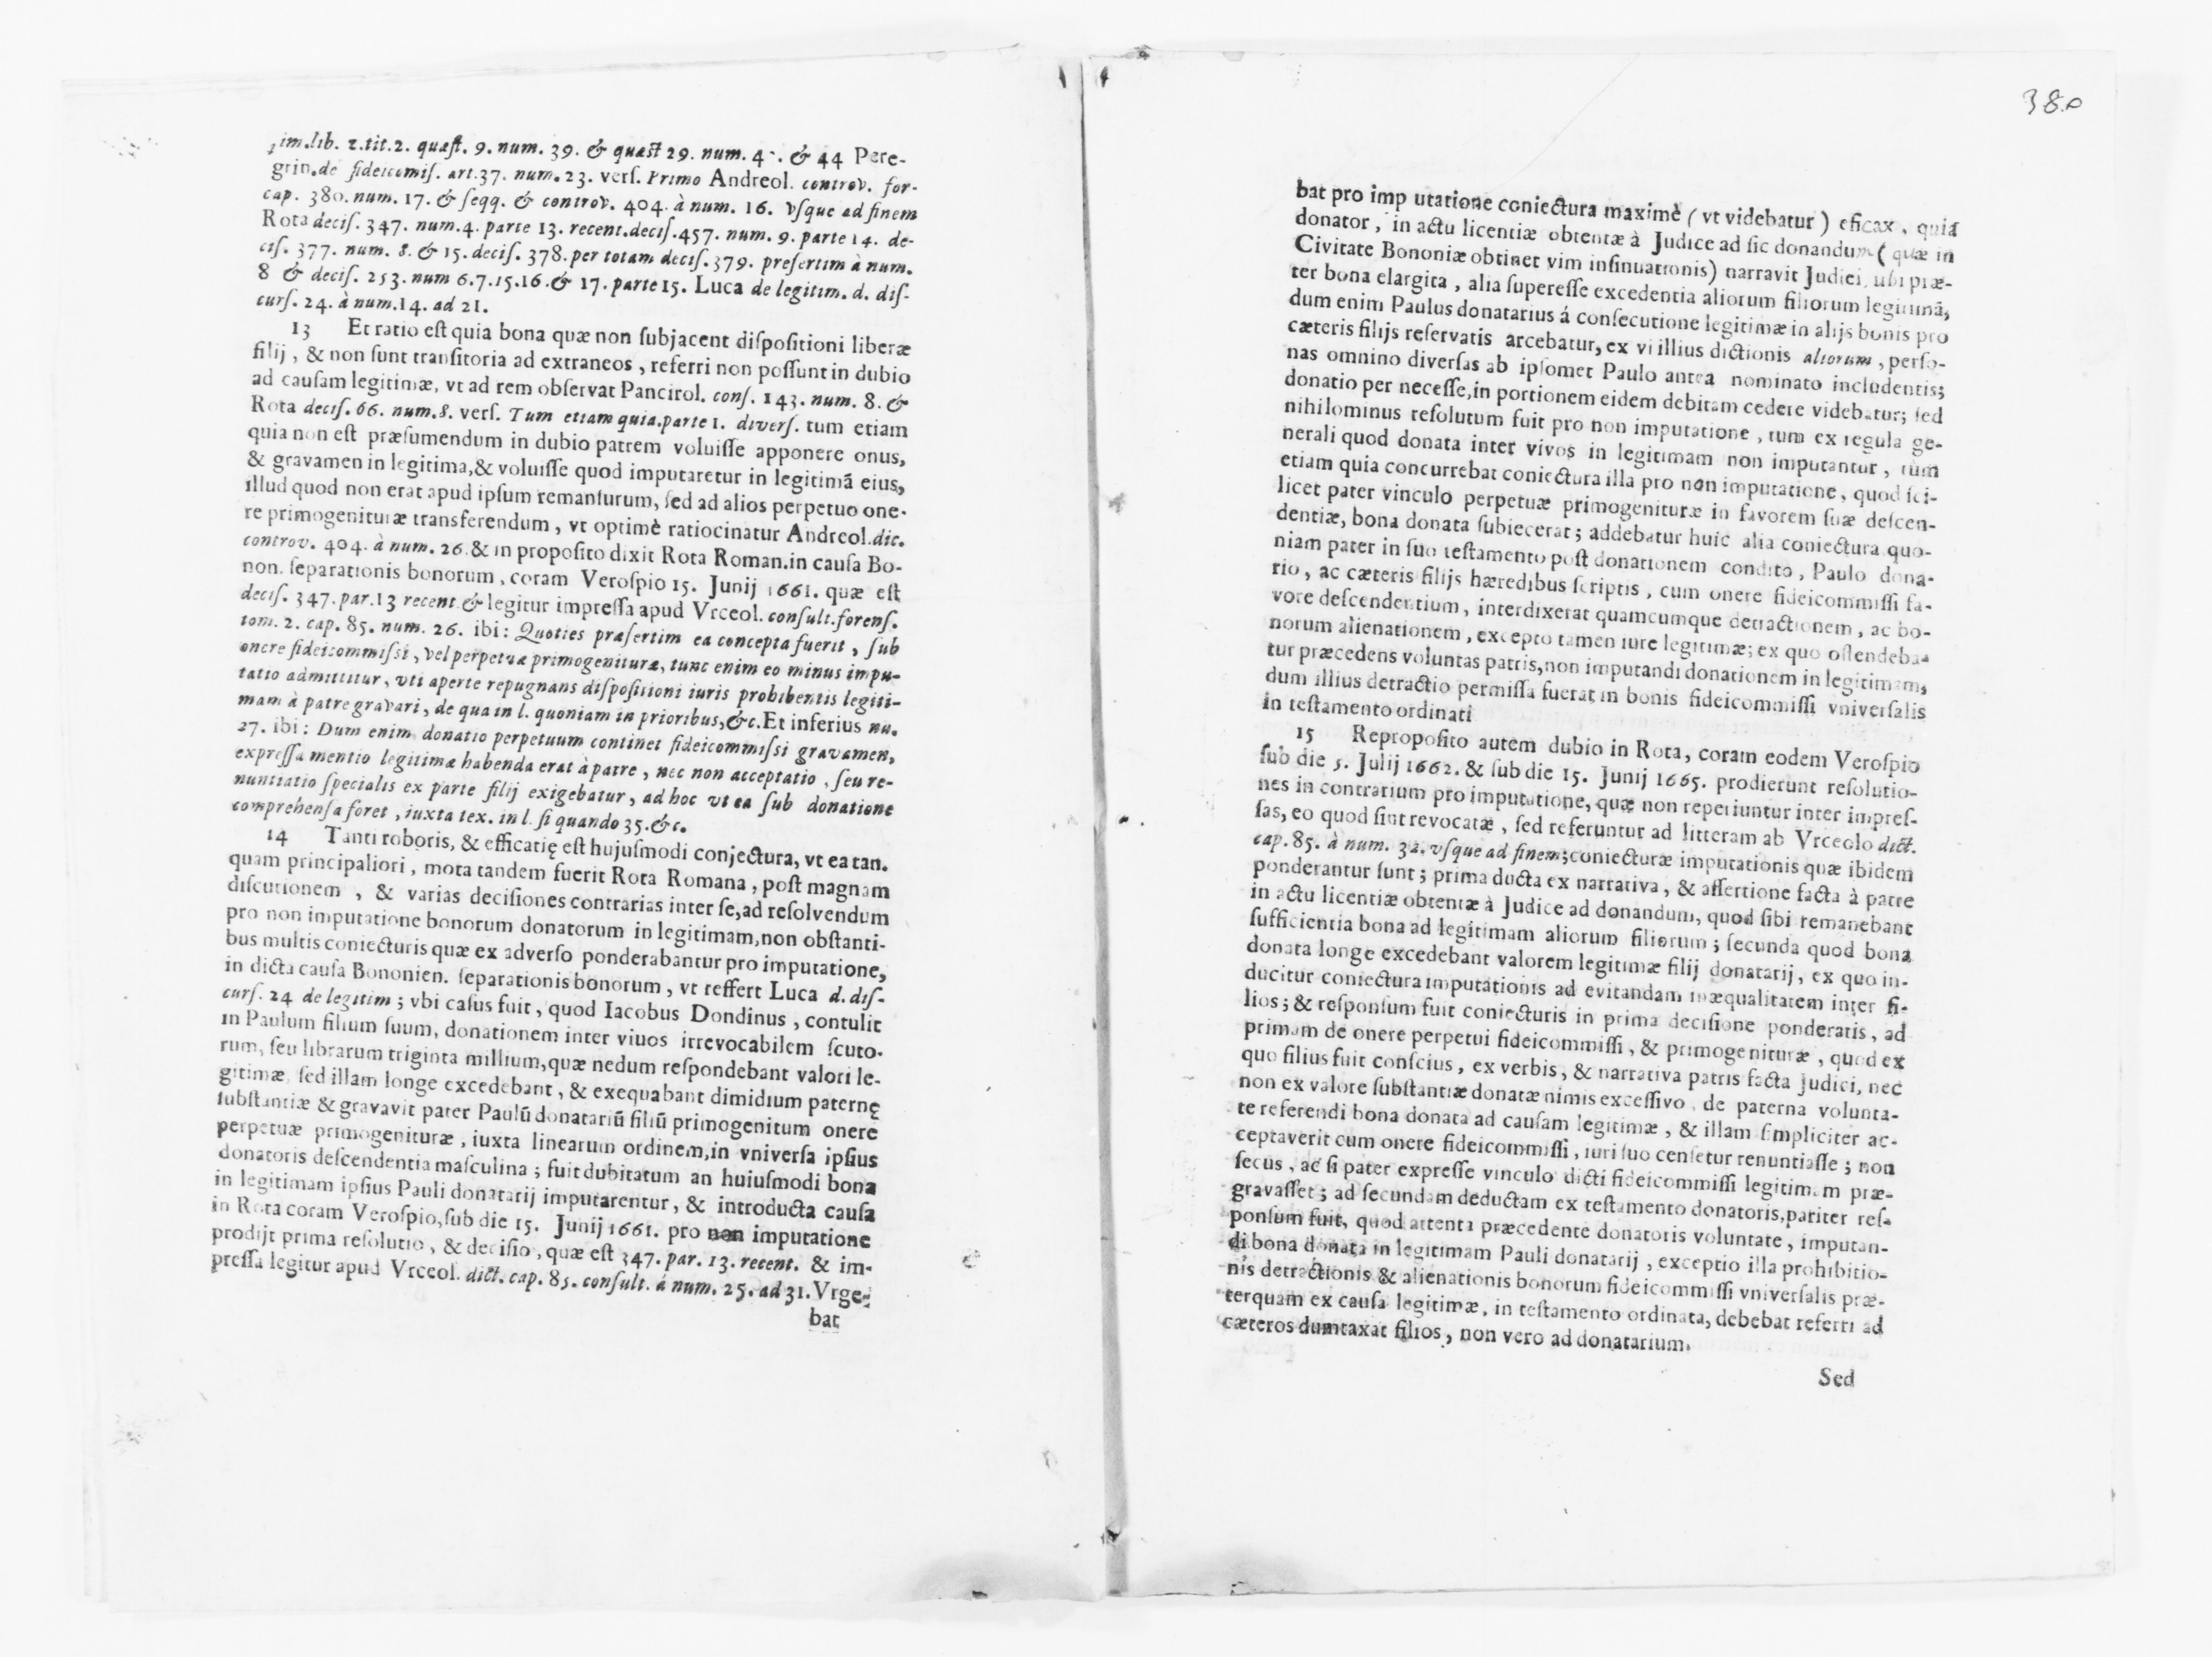 im.lib. 2.tit.2. quæst. 9. num. 39. & quæst 29. num. 4 . & 44 Pere-
grin.de fideicomis. art.37. num.23. vers. Primo Andreol. controv. for-
cap. 380. num. 17. & seqq. & controv. 404. à num. 16. vsque ad finem
Rota decis. 347. num.4. parte 13. recent.decis.457. num. 9. parte 14. de-
cis. 377. num. 8. & 15. decis. 378. per totam decis. 379. presertim à num.
8 & decis. 253. num 6.7.15.16.& 17. parte 15. Luca de legitim. d. dis-
curs. 24. à num.14. ad 21.
13 Et ratio est quia bona quæ non subjacent dispositioni liberæ
filij, & non sunt transitoria ad extraneos, referri non possunt in dubio
ad causam legitimæ, vt ad rem observat Pancirol. cons. 143. num. 8. &
Rota decis. 66. num.8. vers. Tum etiam quia.parte 1. divers. tum etiam
quia non est præsumendum in dubio patrem voluisse apponere onus,
& gravamen in legitima,& voluisse quod imputaretur in legitimã eius,
illud quod non erat apud ipsum remansurum, sed ad alios perpetuo one-
re primogenituræ transferendum, vt optimè ratiocinatur Andreol.dic.
controv. 404. à num. 26.& in proposito dixit Rota Roman.in causa Bo-
non. separationis bonorum, coram Verospio 15. Junij 1661. quæ est
decis. 347. par.13 recent.& legitur impressa apud Vrceol. consult.forens.
tom. 2. cap. 85. num. 26. ibi: Quoties præsertim ea concepta fuerit, sub
onere fideicommissi, vel perpetuæ primogenituræ, tunc enim eo minus impu-
tatio admittitur, vti aperte repugnans dispositioni iuris prohibentis legiti-
mam à patre gravari, de qua in l. quoniam in prioribus,&c.Et inferius nu.
27. ibi: Dum enim donatio perpetuum continet fideicommissi gravamen,
expressa mentio legitimæ habenda erat à patre, nec non acceptatio, seu re-
nuntiatio specialis ex parte filij exigebatur, ad hoc vt ea sub donatione
comprehensa foret, iuxta tex. in l. si quando 35.&c.
14 Tanti roboris, & efficatię est hujusmodi conjectura, vt ea tan.
quam principaliori, mota tandem fuerit Rota Romana, post magnam
discutionem, & varias decisiones contrarias inter se,ad resolvendum
pro non imputatione bonorum donatorum in legitimam,non obstanti-
bus multis coniecturis quæ ex adverso ponderabantur pro imputatione,
in dicta causa Bononien. separationis bonorum, vt reffert Luca d. dis-
curs. 24 de legitim; vbi casus fuit, quod Iacobus Dondinus, contulit
in Paulum filium suum, donationem inter viuos irrevocabilem scuto-
rum, seu librarum triginta millium,quæ nedum respondebant valori le-
gitimæ, sed illam longe excedebant, & exequabant dimidium paternę
substantiæ & gravavit pater Paulũ donatariũ filiũ primogenitum onere
perpetuæ primogenituræ, iuxta linearum ordinem,in vniversa ipsius
donatoris descendentia masculina; fuit dubitatum an huiusmodi bona
in legitimam ipsius Pauli donatarij imputarentur, & introducta causa
in Rota coram Verospio,sub die 15. Junij 1661. pro non imputatione
prodijt prima resolutio, & decisio, quæ est 347. par. 13. recent. & im-
pressa legitur apud Vrceol. dict. cap. 85. consult. á num. 25. ad 31. Vrge-
bat
380
bat pro imp utatione coniectura maximè (vt videbatur) eficax, quia
donator, in actu licentiæ obtentæ à Judice ad sic donandum (quæ in
Civitate Bononiæ obtinet vim insinuationis) narravit Judici, ubi præ-
ter bona elargita, alia superesse excedentia aliorum filiorum legitimã,
dum enim Paulus donatarius á consecutione legitimæ in alijs bonis pro
cæteris filijs reservatis arcebatur, ex vi illius dictionis aliorum, perso-
nas omnino diversas ab ipsomet Paulo antea nominato includentis;
donatio per necesse,in portionem eidem debitam cedere videbatur; sed
nihilominus resolutum fuit pro non imputatione, tum ex regula ge-
nerali quod donata inter vivos in legitimam non imputantur, tum
etiam quia concurrebat coniectura illa pro non imputatione, quod sci-
licet pater vinculo perpetuæ primogenituræ in favorem suæ descen-
dentiæ, bona donata subiecerat; addebatur huic alia coniectura quo-
niam pater in suo testamento post donationem condito, Paulo dona-
rio, ac cæteris filijs hæredibus scriptis, cum onere fideicommissi fa-
vore descendentium, interdixerat quamcumque detractionem, ac bo-
norum alienationem, excepto tamen iure legitimæ; ex quo ostendeba-
tur præcedens voluntas patris,non imputandi donationem in legitimam,
dum illius detractio permissa fuerat in bonis fideicommissi vniversalis
in testamento ordinati
15 Reproposito autem dubio in Rota, coram eodem Verospio
sub die 5. Julij 1662. & sub die 15. Junij 1665. prodierunt resolutio-
nes in contrarium pro imputatione, quæ non reperiuntur inter impres-
sas, eo quod sint revocatæ, sed referuntur ad litteram ab Vrceolo dict.
cap. 85. à num. 32. vsque ad finem;coniecturæ imputationis quæ ibidem
ponderantur sunt; prima ducta ex narrativa, & assertione facta à patre
in actu licentiæ obtentæ à Judice ad donandum, quod sibi remanebant
sufficientia bona ad legitimam aliorum filiorum; secunda quod bona
donata longe excedebant valorem legitimæ filij donatarij, ex quo in-
ducitur coniectura imputationis ad evitandam inæqualitatem inter fi-
lios; & responsum fuit coniecturis in prima decisione ponderatis, ad
primam de onere perpetui fideicommissi, & primogenituræ, quod ex
quo filius fuit conscius, ex verbis, & narrativa patris facta Judici, nec
non ex valore substantiæ donatæ nimis excessivo, de paterna volunta-
te referendi bona donata ad causam legitimæ, & illam simpliciter ac-
ceptaverit cum onere fideicommissi, iuri suo censetur renuntiasse; non
secus, ac si pater expresse vinculo dicti fideicommissi legitimam præ-
gravasset; ad secundam deductam ex testamento donatoris,pariter res-
ponsum fuit, quod attenta præcedente donatoris voluntate, imputan-
di bona donata in legitimam Pauli donatarij, exceptio illa prohibitio-
nis detractionis & alienationis bonorum fideicommissi vniversalis præ-
terquam ex causa legitimæ, in testamento ordinata, debebat referri ad
cæteros dumtaxat filios, non vero ad donatarium.
Sed